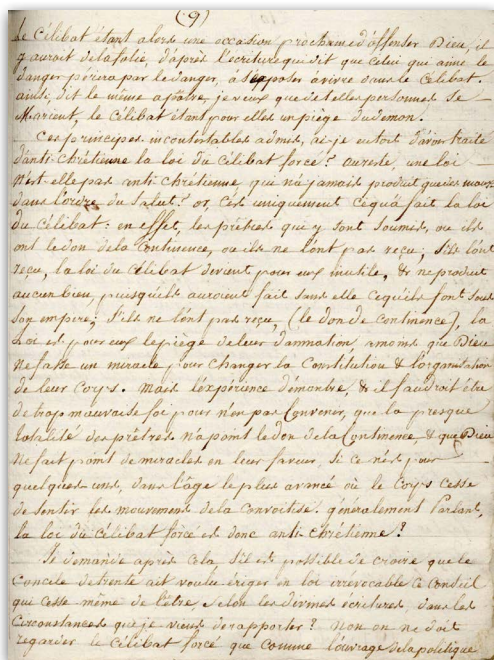 (9)
Le Célibat étant alors une occasion prochaine d'offenser Dieu, il
y aurait de la folie, d'après l'écriture qui dit que celui qui aime le
danger périra par le danger, à s'exposer à vivre dans le Célibat.
ainsi, dit le même apôtre, je veux que de telles personnes se
Marient, le Célibat étant pour elles un piege du demon.
Ces principes incontestables admis, ai-je eu tort d'avoir traité
d'anti-chrétienne la loi du Célibat forcé? au reste une loi
n'est elle pas anti-chrétienne, qui n'a jamais produit que des maux
dans l'ordre du Salut? or, C'est uniquement ce qu'a fait la loi
du Célibat: en effet, les prêtres qui y sont soumis, ou ils
ont le don de la Continence, ou ils ne l'ont pas reçu; S'ils l'ont
reçu, la loi du Célibat devient pour eux inutile, & ne produit
aucun bien, puisqu'ils auroient fait sans elle ce qu'ils font sous
son empire; S'ils ne l'ont pas reçu, (le don de continence), la
Loi est pour eux le piege de leur damnation amoins que Dieu
ne fasse un miracle pour changer la Constitution & l'organisation
de leur Corps. Mais l'expérience démontre, & il faudroit être
de trop mauvaise foi pour n'en pas Convenir, que la presque
totalité des prêtres n'a point le don de la Continence & que Dieu
ne fait point de miracles en leur faveur, Si ce n'est pour
quelques uns, dans l'âge le plus avancé où le Corps cesse
de sentir les mouvemens de la convoitise. généralement Parlant,
la loi du Célibat forcé est donc anti-chrétienne?
Je demande après cela, S'il est possible de croire que le
Concile de trente ait voulu ériger en loi irrévocable ce Conseil
qui cesse même de l'être, selon les divines écritures, dans les
Circonstances que je viens de rapporter? Non on ne doit
regarder le Célibat forcé que comme l'ouvrage de la politique